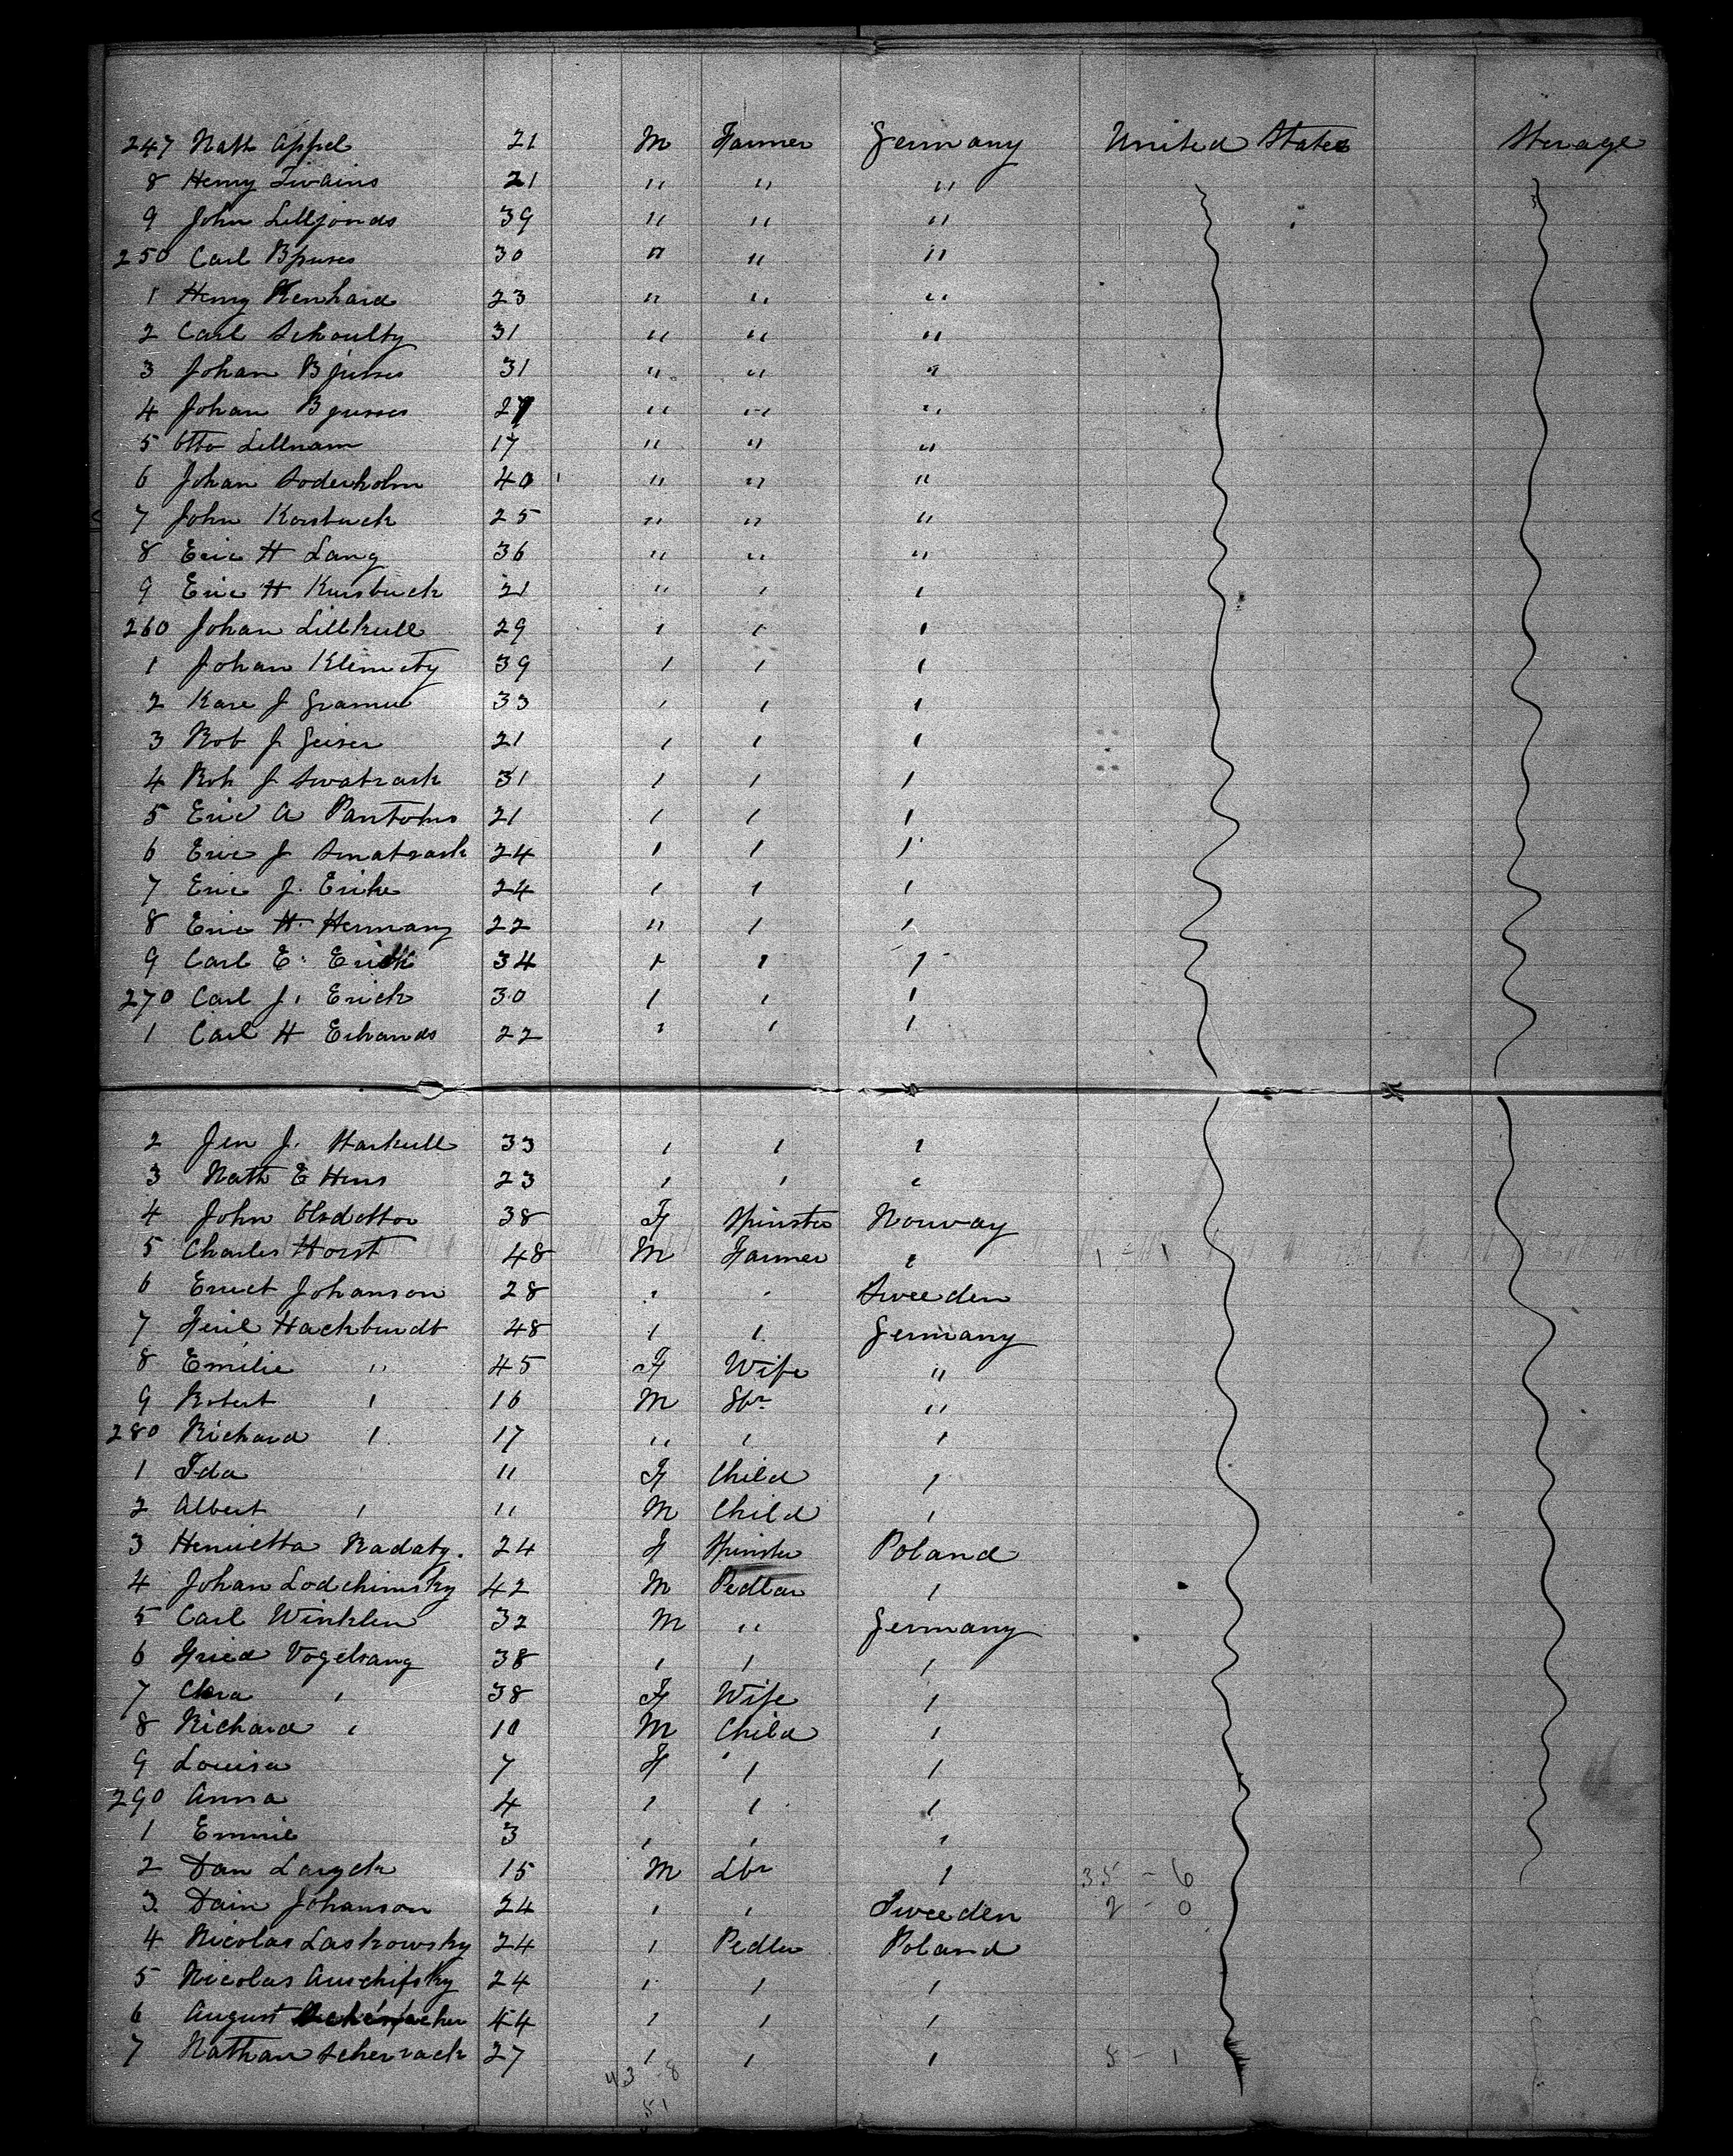 247 Nath Appel 21 M Farmer Germany United States Sterage
8 Henry Swains 21 " " "
9 John Lilljonds 39 " " "
250 Carl 30 " " "
1 Henry 23 " " "
2 Carl Schoulty 31 " " "
3 Johan 31 " " "
4 Johan 27 " " "
5 Otto Lillnam 17 " " "
6 Johan Soderholm 40 " " "
7 John Korsbuck 25 " " "
8 Eric H Lang 36 " " "
9 Eric H Kursbuck 21 " " "
260 Johan Lillkull 29 " " "
1 Johan Klemety 39 " " "
2 J 33 " " "
3 Rob J Geiser 21 " " "
4 Rob J Swatrack 31 " " "
5 Eric A 21 " " "
6 Eric J Smatrack 24 " " "
7 Eric J. 24 " " "
8 Eric H. Hermany 22 " " "
9 Carl E. Erick 34 " " "
270 Carl J. Erick 30 " " "
1 Carl H Erhands 22 " " "
2 J. Harkull 33 " " "
3 Nath E Hens 23 " " "
4 John 38 F Spinster Norway
5 Charles Horst 48 M Farmer " 1 - 1
6 Johanson 28 " " Sweeden
7 Hackbundt 48 " " Germany
8 Emilie " 45 F Wife "
9 Robert " 16 M "
280 Richard " 17 " " "
1 Ida 11 F Child "
2 Albert " 11 M Child "
3 Henrietta Radatz. 24 F Spinster Poland
4 Johan Lodchimsky 42 M Pedlar "
5 Carl Winklen 32 M " Germany
6 Fried Vogelsang 38 " " "
7 Clara " 38 F Wife "
8 Richard " 10 M Child "
9 Louisa 7 F " "
290 Anna 4 " " "
1 Emmie 3 " " "
2 Dan 15 M Lbr " 35 - 6
3 Dain Johanson 24 " " Sweeden 2 - 0
4 Nicolas Laskowsky 24 " Pedler Poland
5 Nicolas Auschifsky 24 " " "
6 August 44 " " "
7 Nathan Scherrack 27 " " " 5 - 1
43 - 8
51